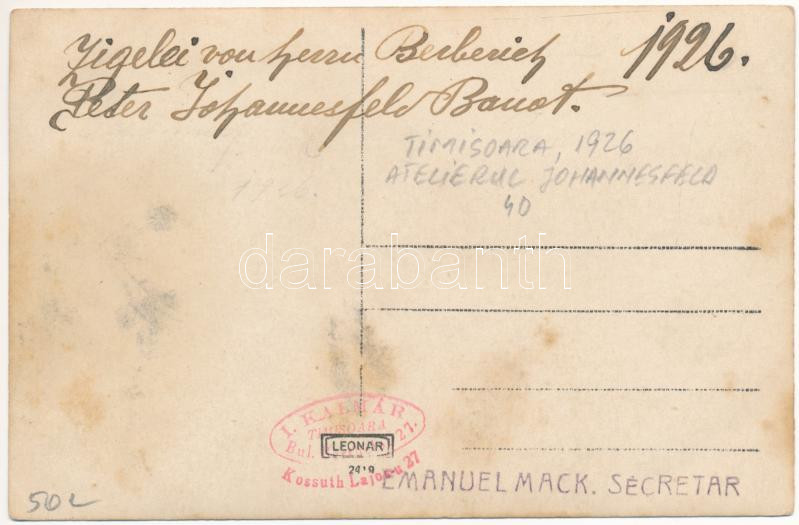 Zigelei von Herrn Berberich 1926.
Peter Johannesfeld Banat.
TIMISOARA, 1926
ATELIERUL JOHANNESFELD
40
1926.
darabanth
I. KALMÁR
TIMISOARA
Bul. 27.
LEONAR
2419
Kossuth Lajos u 27
EMANUEL MACK. SECRETAR
50L